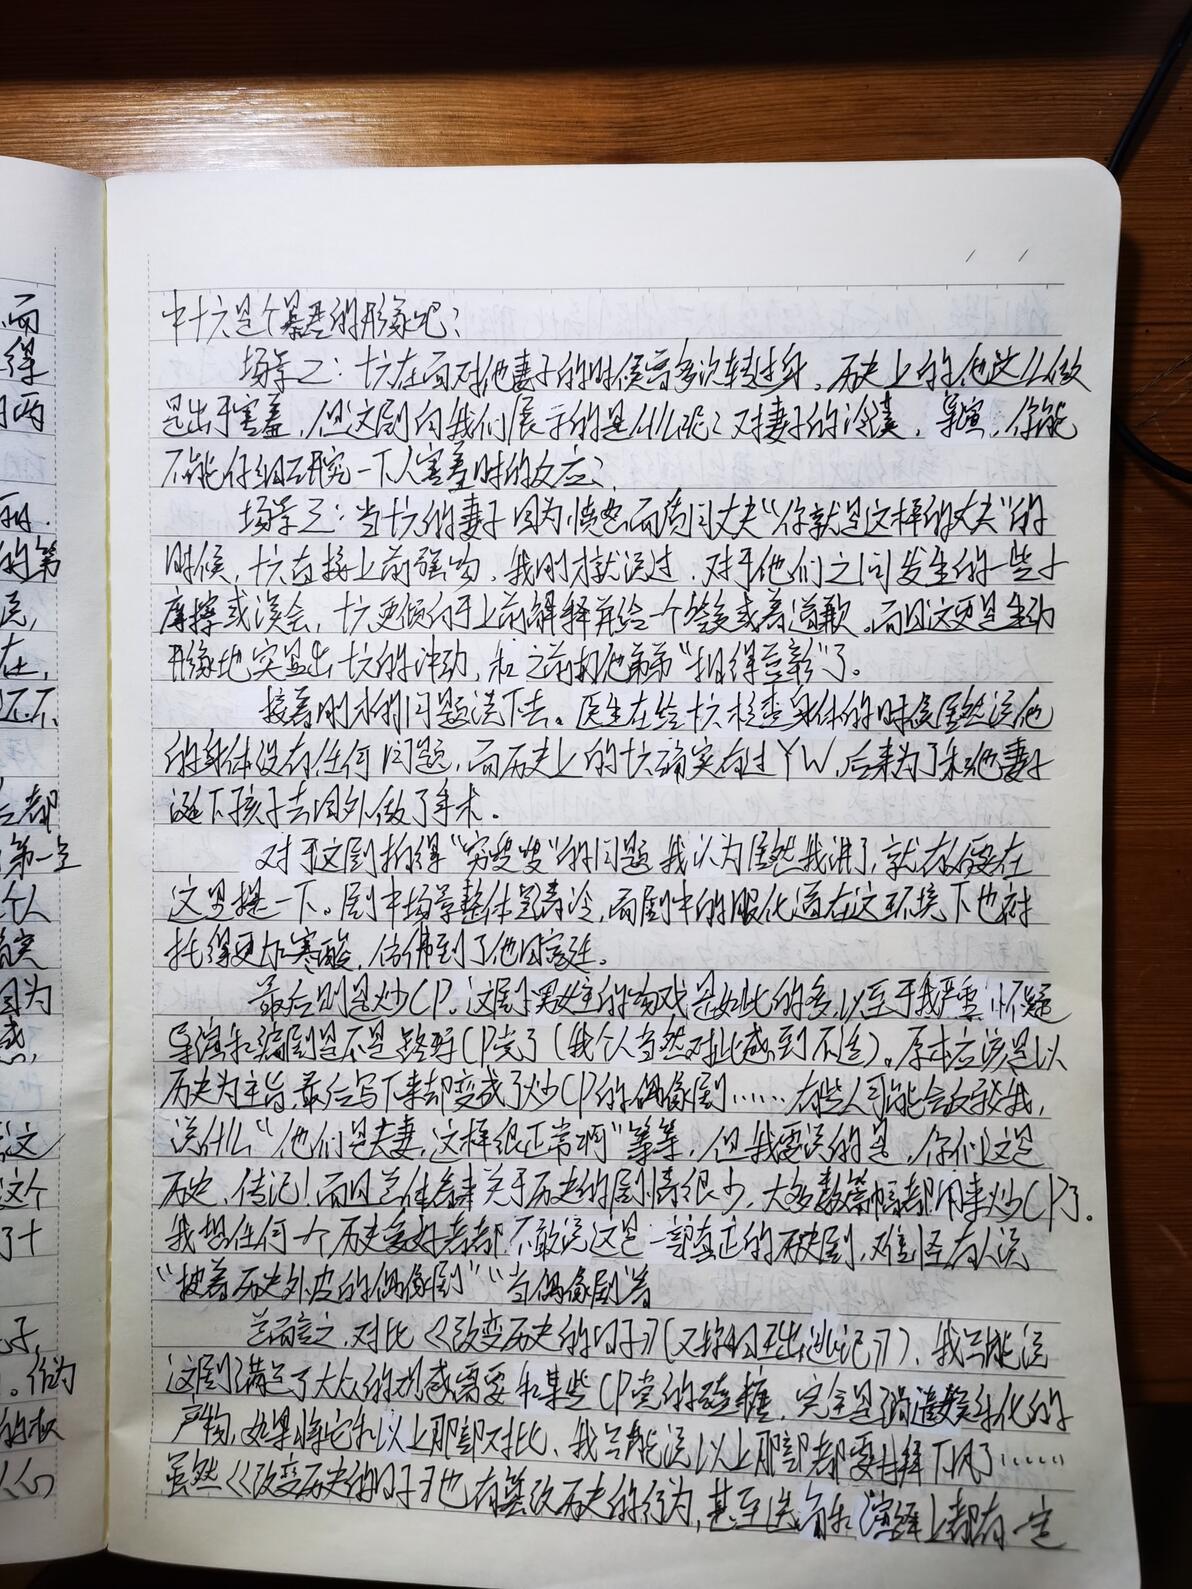 而
得
两
的第
在,
还不
都
第一是
个人
因为
感,
这个
了十
中十六是个暴君的形象吧?
场景二:十六在面对他妻子的时候常多次转过身。历史上的他这么做
是出于害羞,但这剧向我们展示的是什么呢?对妻子的冷漠。导演,你能
不能仔细研究一下人害羞时的反应?
场景三:当十六的妻子因为愤怒而质问丈夫“你就是这样的丈夫”的
时候,十六直接上前强吻。我刚才就说过,对于他们之间发生的一些小
摩擦或误会,十六更倾向于上前解释并给一个答复或者道歉。而且这更是生动
形象地突显出十六的冲动,和之前打他弟弟“相得益彰”了。
接着刚才的问题说下去。医生在给十六检查身体的时候居然说他
的身体没有任何问题,而历史上的十六确实有过YW,后来为了和他妻子
诞下孩子去国外做了手术。
对于这剧拍得“穷嗖嗖”的问题我认为居然我讲了,就有必要在
这里提一下。剧中场景整体是清冷,而剧中的服化道在这环境下也衬
托得更加寒酸,仿佛到了他国宫廷。
最后则是炒CP。这剧男女主的吻戏是如此的多,以至于我严重怀疑
导演和编剧是不是路转CP党了(我个人当然对此感到不适)。原本应该是以
历史为主旨,最后写下来却变成了炒CP的偶像剧……有些人可能会反驳我,
说什么“他们是夫妻,这样很正常啊”等等,但我要说的是,你们这是
历史,传记!而且总体看来关于历史的剧情很少,大多数篇幅都用来炒CP了。
我想任何一个历史爱好者都不敢说这是一部真正的历史剧,难怪有人说
“披着历史外皮的偶像剧”“当偶像剧看
总而言之,对比《改变历史的日子》(又称国王出逃记》),我只能说
这剧满足了大众的观感需要和某些CP党的磕糖,完全是消遣娱乐化的
产物,如果将它和以上那部对比,我只能说以上那部都要甘拜下风了……
虽然《改变历史的日子》也有篡改历史的行为,甚至选角和演绎上都有一定